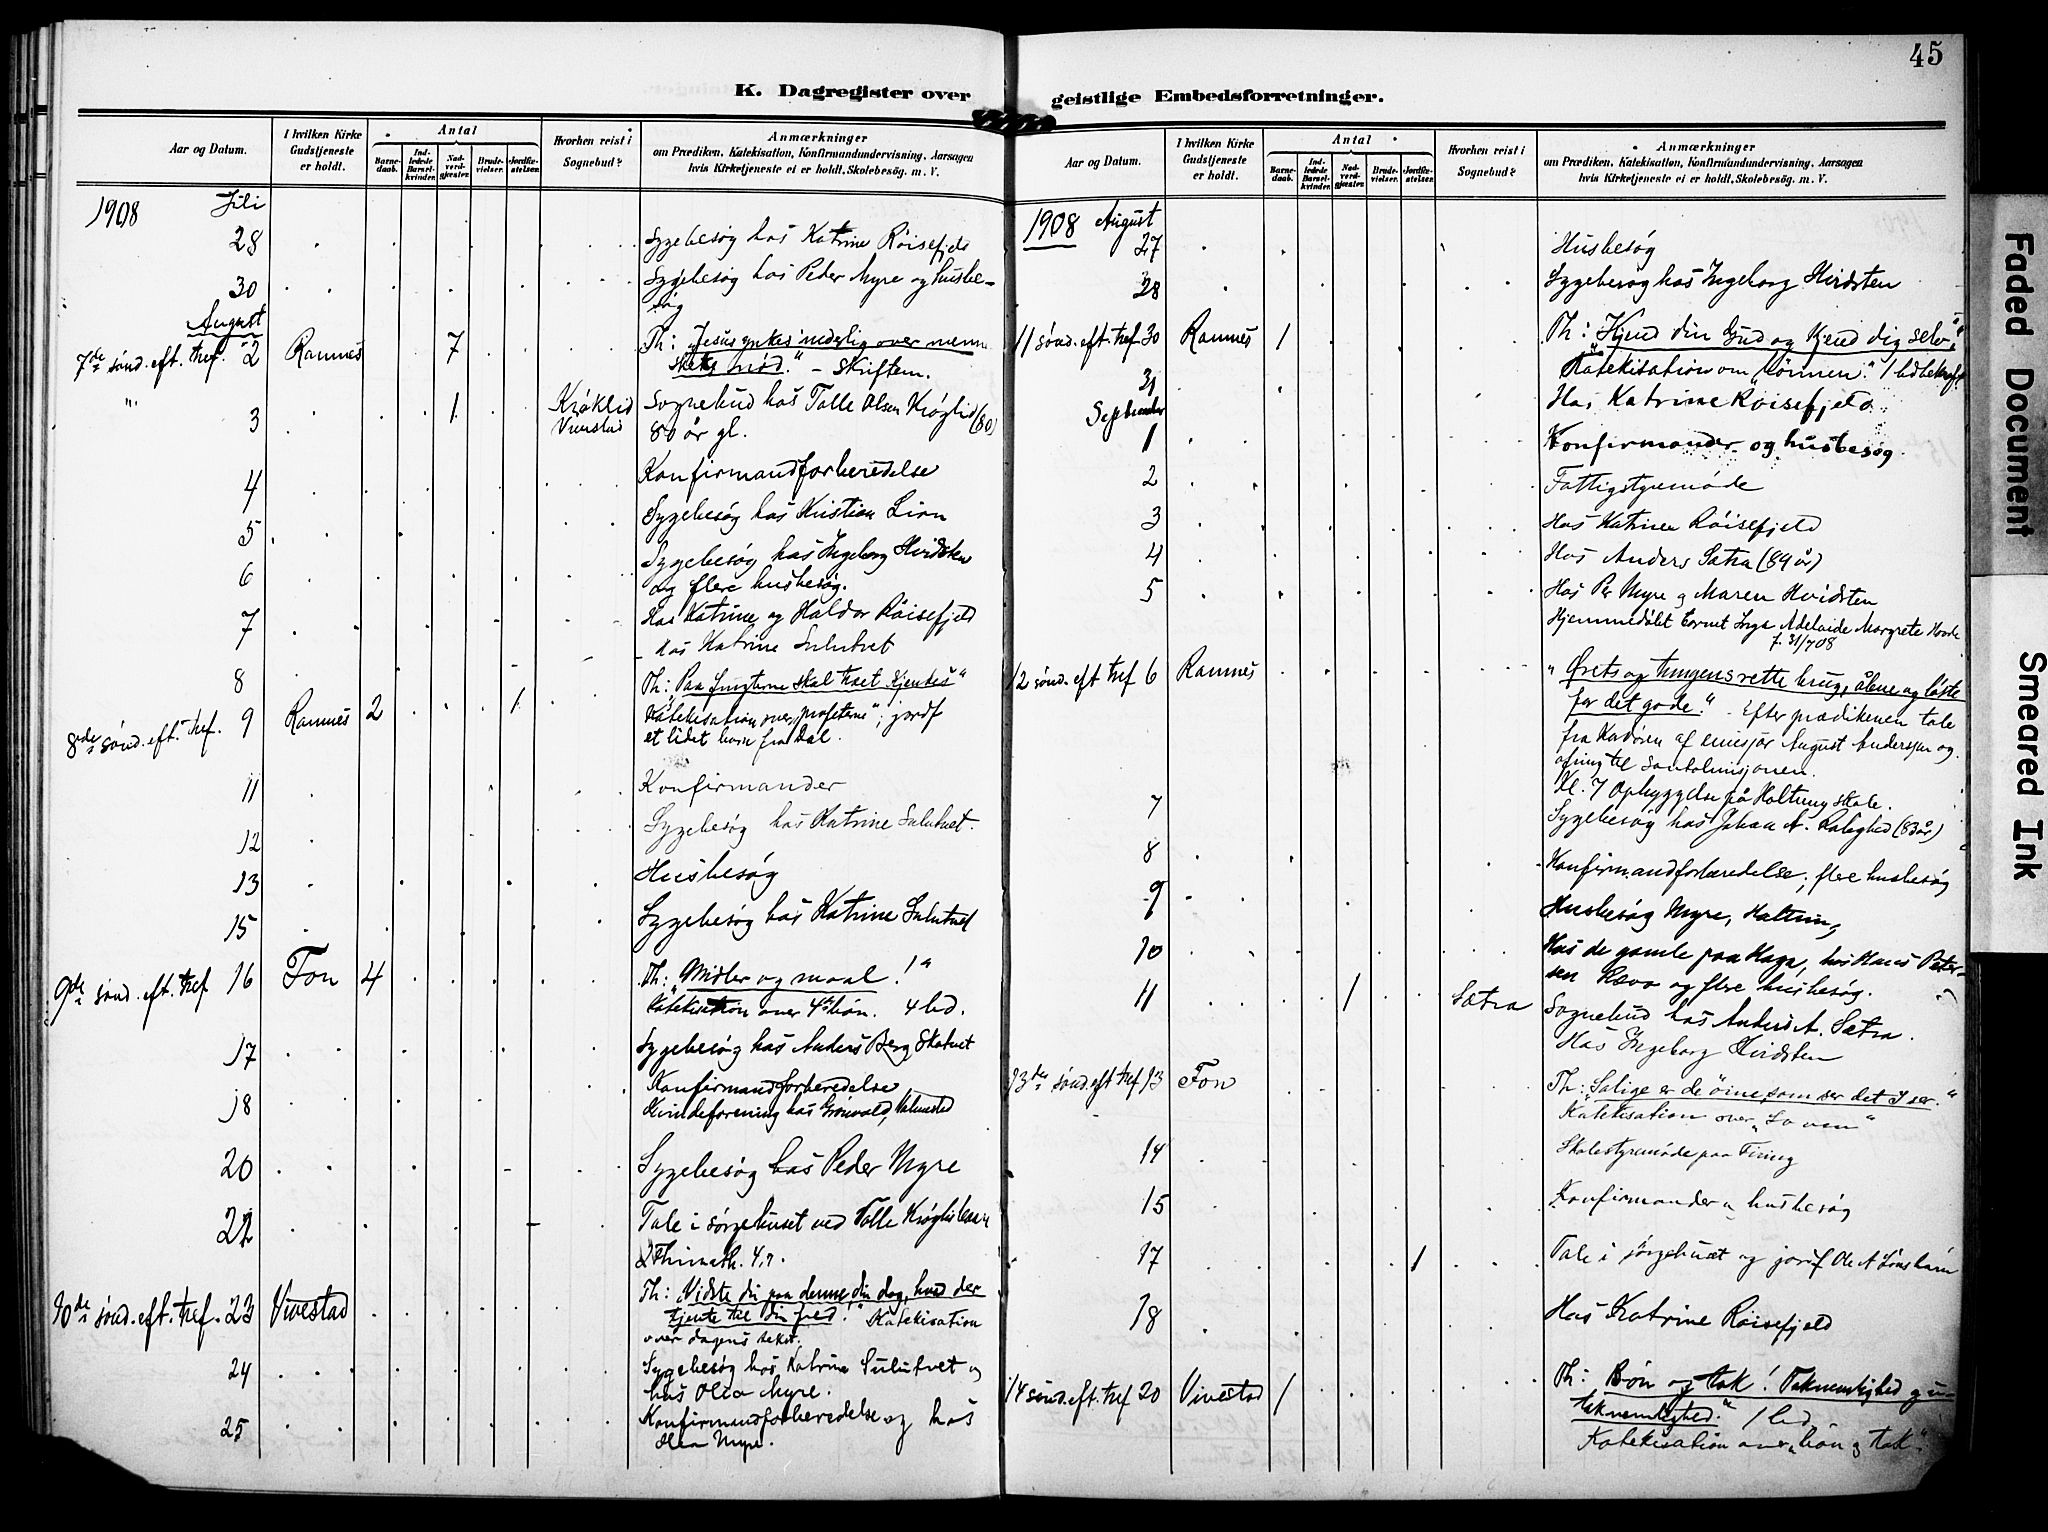 45
K. Dagregister over geistlige Embedsforretninger.
Aar og Datum.
I hvilken Kirke Gudstjeneste er holdt.
Antal
Barne-daab.
Ind-ledede Barsel-kvinder.
Nad-verd-gjæster.
Brude-vielser.
Jordfæ-stelser.
Hvorhen reist i Sognebud?
Anmærkninger
om Prædiken, Katekisation, Konfirmandundervisning, Aarsagen
hvis Kirketjeneste ei er holdt, Skolebesøg. m. V.
1908 Juli
28 Sygebesøg hos Katrine Röisefjeld
30 Sygebesøg hos Peder Myre og husbe-
søg
August
7de sönd. eft. tref. 2 Ramnes 7 Th: "Jesus ynkes inderlig over menne
skets nød." – Skriftem.
3 1 Kröklid Vivestad Sognebud hos Tolle Olsen Kröglid (80)
80 år gl.
4 Konfirmandforberedelse
5 Sygebesøg hos Kristian Lian
6 Sygebesøg hos Ingeborg Hvidsten
og flere husbesøg.
7 Hos Katrine og Haldor Röisefjeld
8 hos Katrine Sulutvet
8de sönd. eft. tref. 9 Ramnes 2 1 Th: "Paa frugterne skal træet kjendes"
Katekisation over "profeterne"; jordf
et lidet barn fra Dal.
11 Konfirmander
12 Sygebesøg hos Katrine Sulutvet.
13 Husbesøg
15 Sygebesøg hos Katrine Sulutvet
9de sönd. eft. tref 16 Fon 4 Th: "Midler og maal!"
Katekisation over 4de bön. 4 bd.
17 Sygebesøg hos Anders Berg Skatvet
18 Konfirmandforberedelse
Kvindeforening hos Grönvold,
20 Sygebesøg hos Peder Myre
22 Tale i sørgehuset ved Tolle
2 Thimoth. 4,7.
10de sönd. eft. tref. 23 Vivestad Th: "Vidste du paa denne din dag, hvad der
tjente til din fred!" Katekisation
over dagens tekst.
24 Sygebesøg hos Katrine Sulutvet og
hos Olea Myre.
25 Konfirmandforberedelse og hos
Olea Myre.
Aar og Datum.
I hvilken Kirke Gudstjeneste er holdt.
Antal
Barne-daab.
Ind-ledede Barsel-kvinder.
Nad-verd-gjæster.
Brude-vielser.
Jordfæ-stelser.
Hvorhen reist i Sognebud?
Anmærkninger
om Prædiken, Katekisation, Konfirmandundervisning, Aarsagen
hvis Kirketjeneste ei er holdt, Skolebesøg. m. V.
1908 August
27 Husbesøg
28 Sygebesøg hos Ingeborg Hvidsten
11 sönd. eft. tref. 30 Ramnes 1 Th: "Kjend din Gud og kjend dig selv!"
Katekisation om "bönnen."
31 Hos Katrine Röisefjeld
September
1 Konfirmander og husbesøg.
2 Fattigstyremöde
3 Hos Katrine Röisefjeld
4 Hos Anders Sætra (89 år)
5 Hos Per Myre og Maren Hvidsten
Hjemmedøbt barnet Inga Adelaide Margrete
f. 31/7 08
12 sönd. eft tref 6 Ramnes "Ørets og tungens rette brug, åbne og løste
for det gode." Efter prædikenen tale
fra Kordøren af emisjær August Andersen og
ofring til Santalmisjonen.
Kl. 7 Opbyggelse på Holtung skole.
7 Sygebesøg hos Johan A. (83 år)
8 Konfirmandforberedelse; flere husbesøg
9 Husbesøg Myre,
10 Hos de gamle paa Haga, hos Hans Peter-
sen og flere husbesøg.
11 1 Sætra Sognebud hos Anders A. Sætra.
Hos Ingeborg Hvidsten
13de sönd. eft tref 13 Fon Th: "Salige er de öine, som ser det I ser."
Katekisation over "Loven"
14 Skolestyremöde paa
15 Konfirmander og husbesøg
17 1 Tale i sörgehuset og jordf Ole A
18 Hos Katrine Röisefjeld
14 sönd. eft. tref 20 Vivestad 1 Th: "Bön og tak! Taknemlighed og u-
taknemlighed." 1 bd
Katekisation over "bön og tak".
Faded Document
Smeared Ink